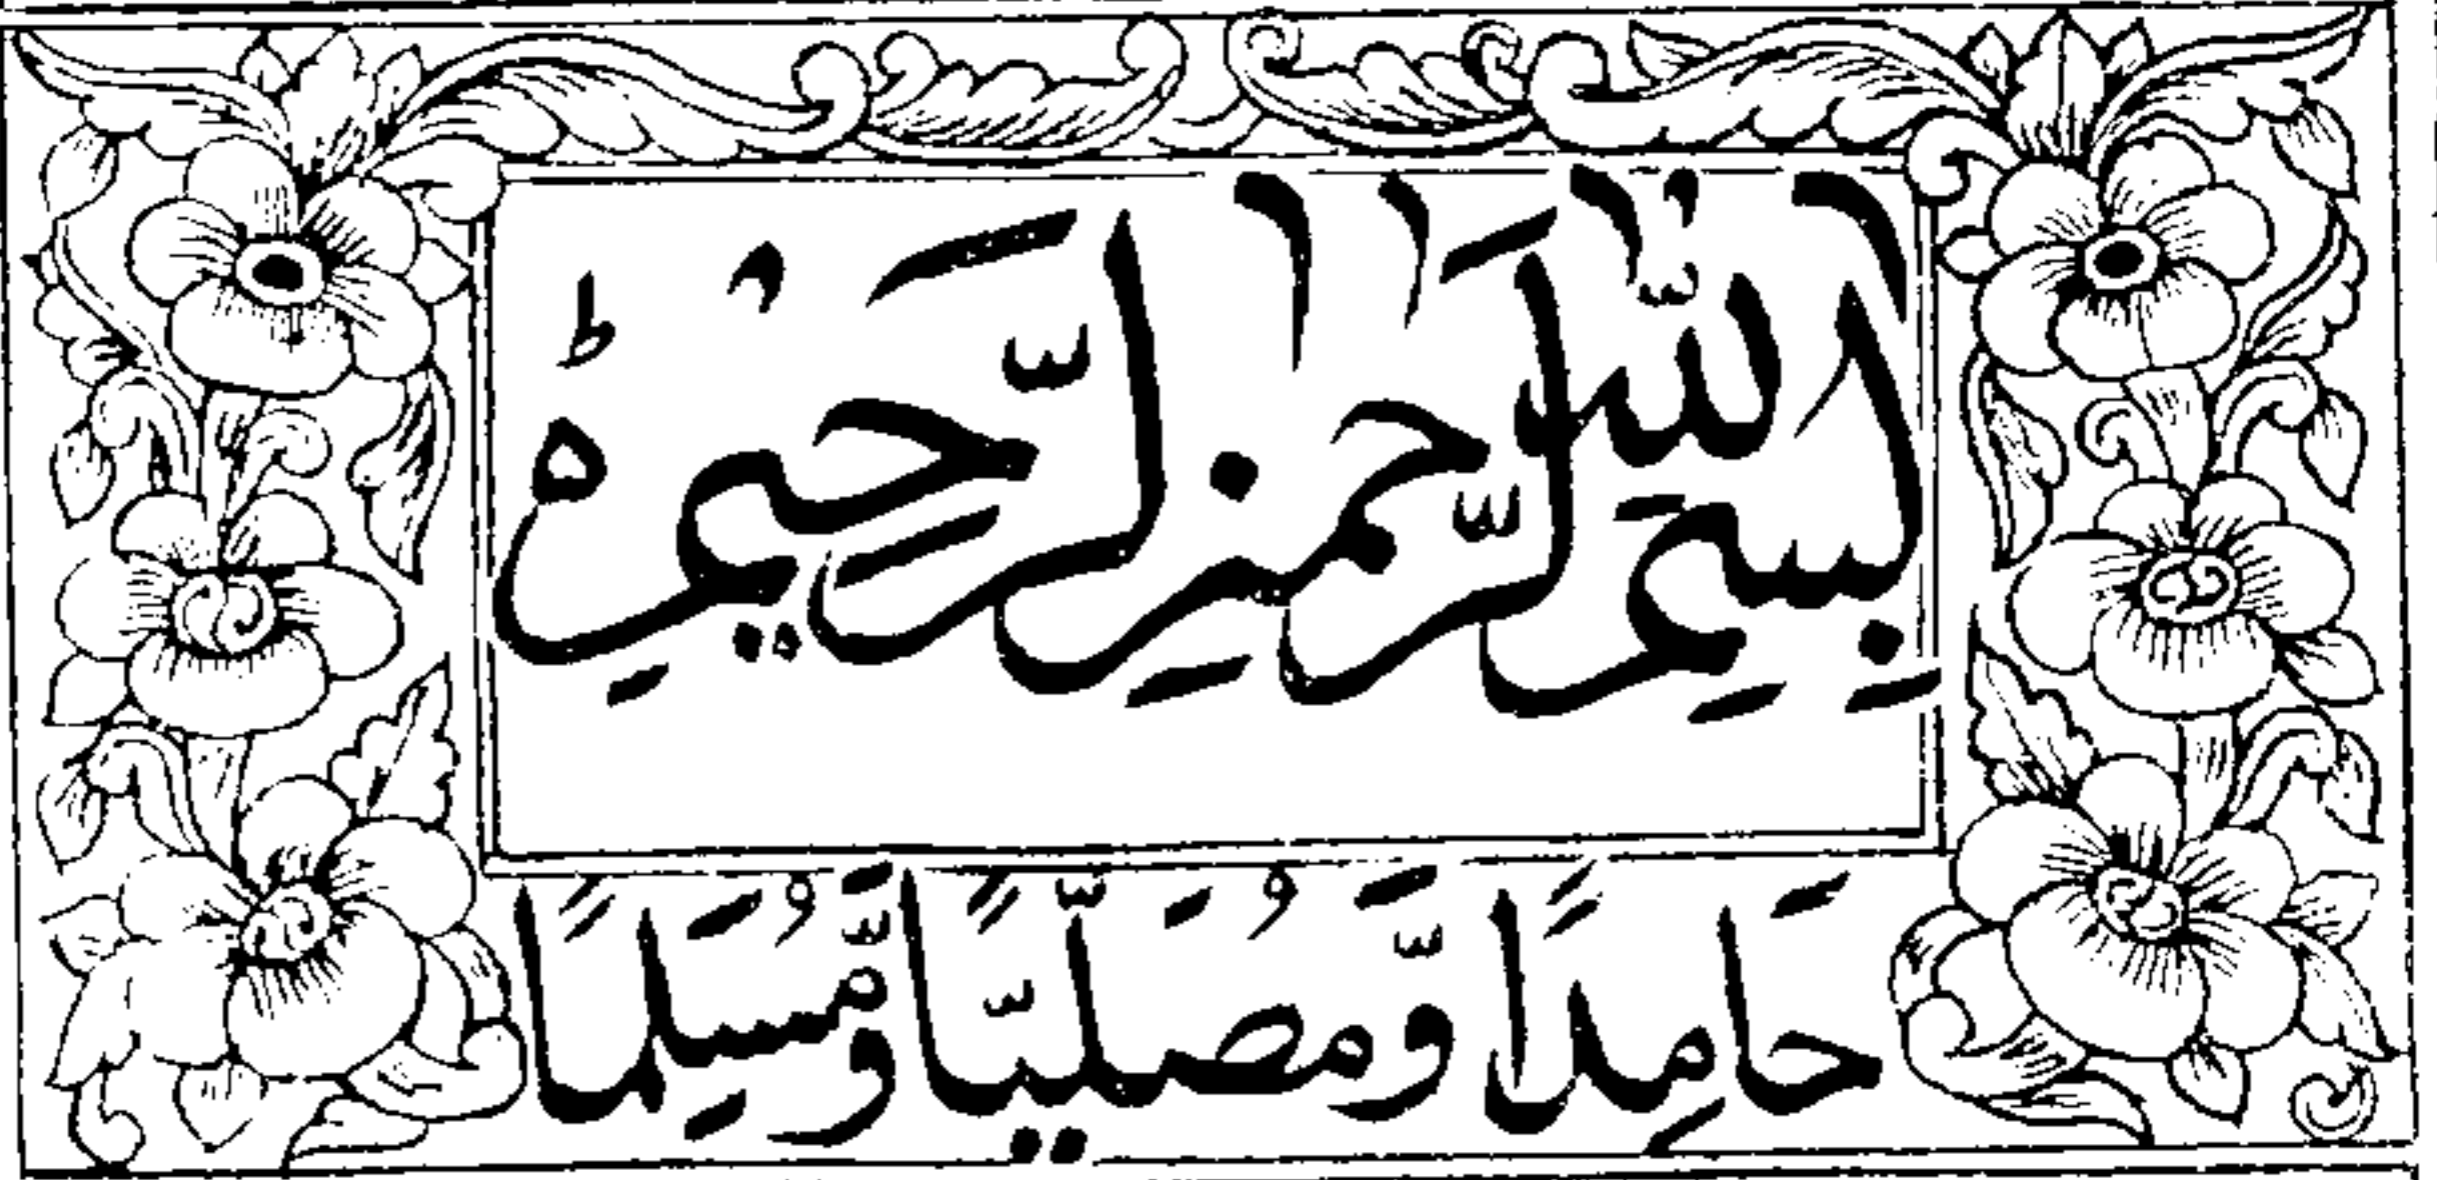 بِسْمِ اللّٰهِ الرَّحْمٰنِ الرَّحِيْمِ ۝ؕ
حَامِدًا وَّمُصَلِّيًا وَّمُسَلِّمًا